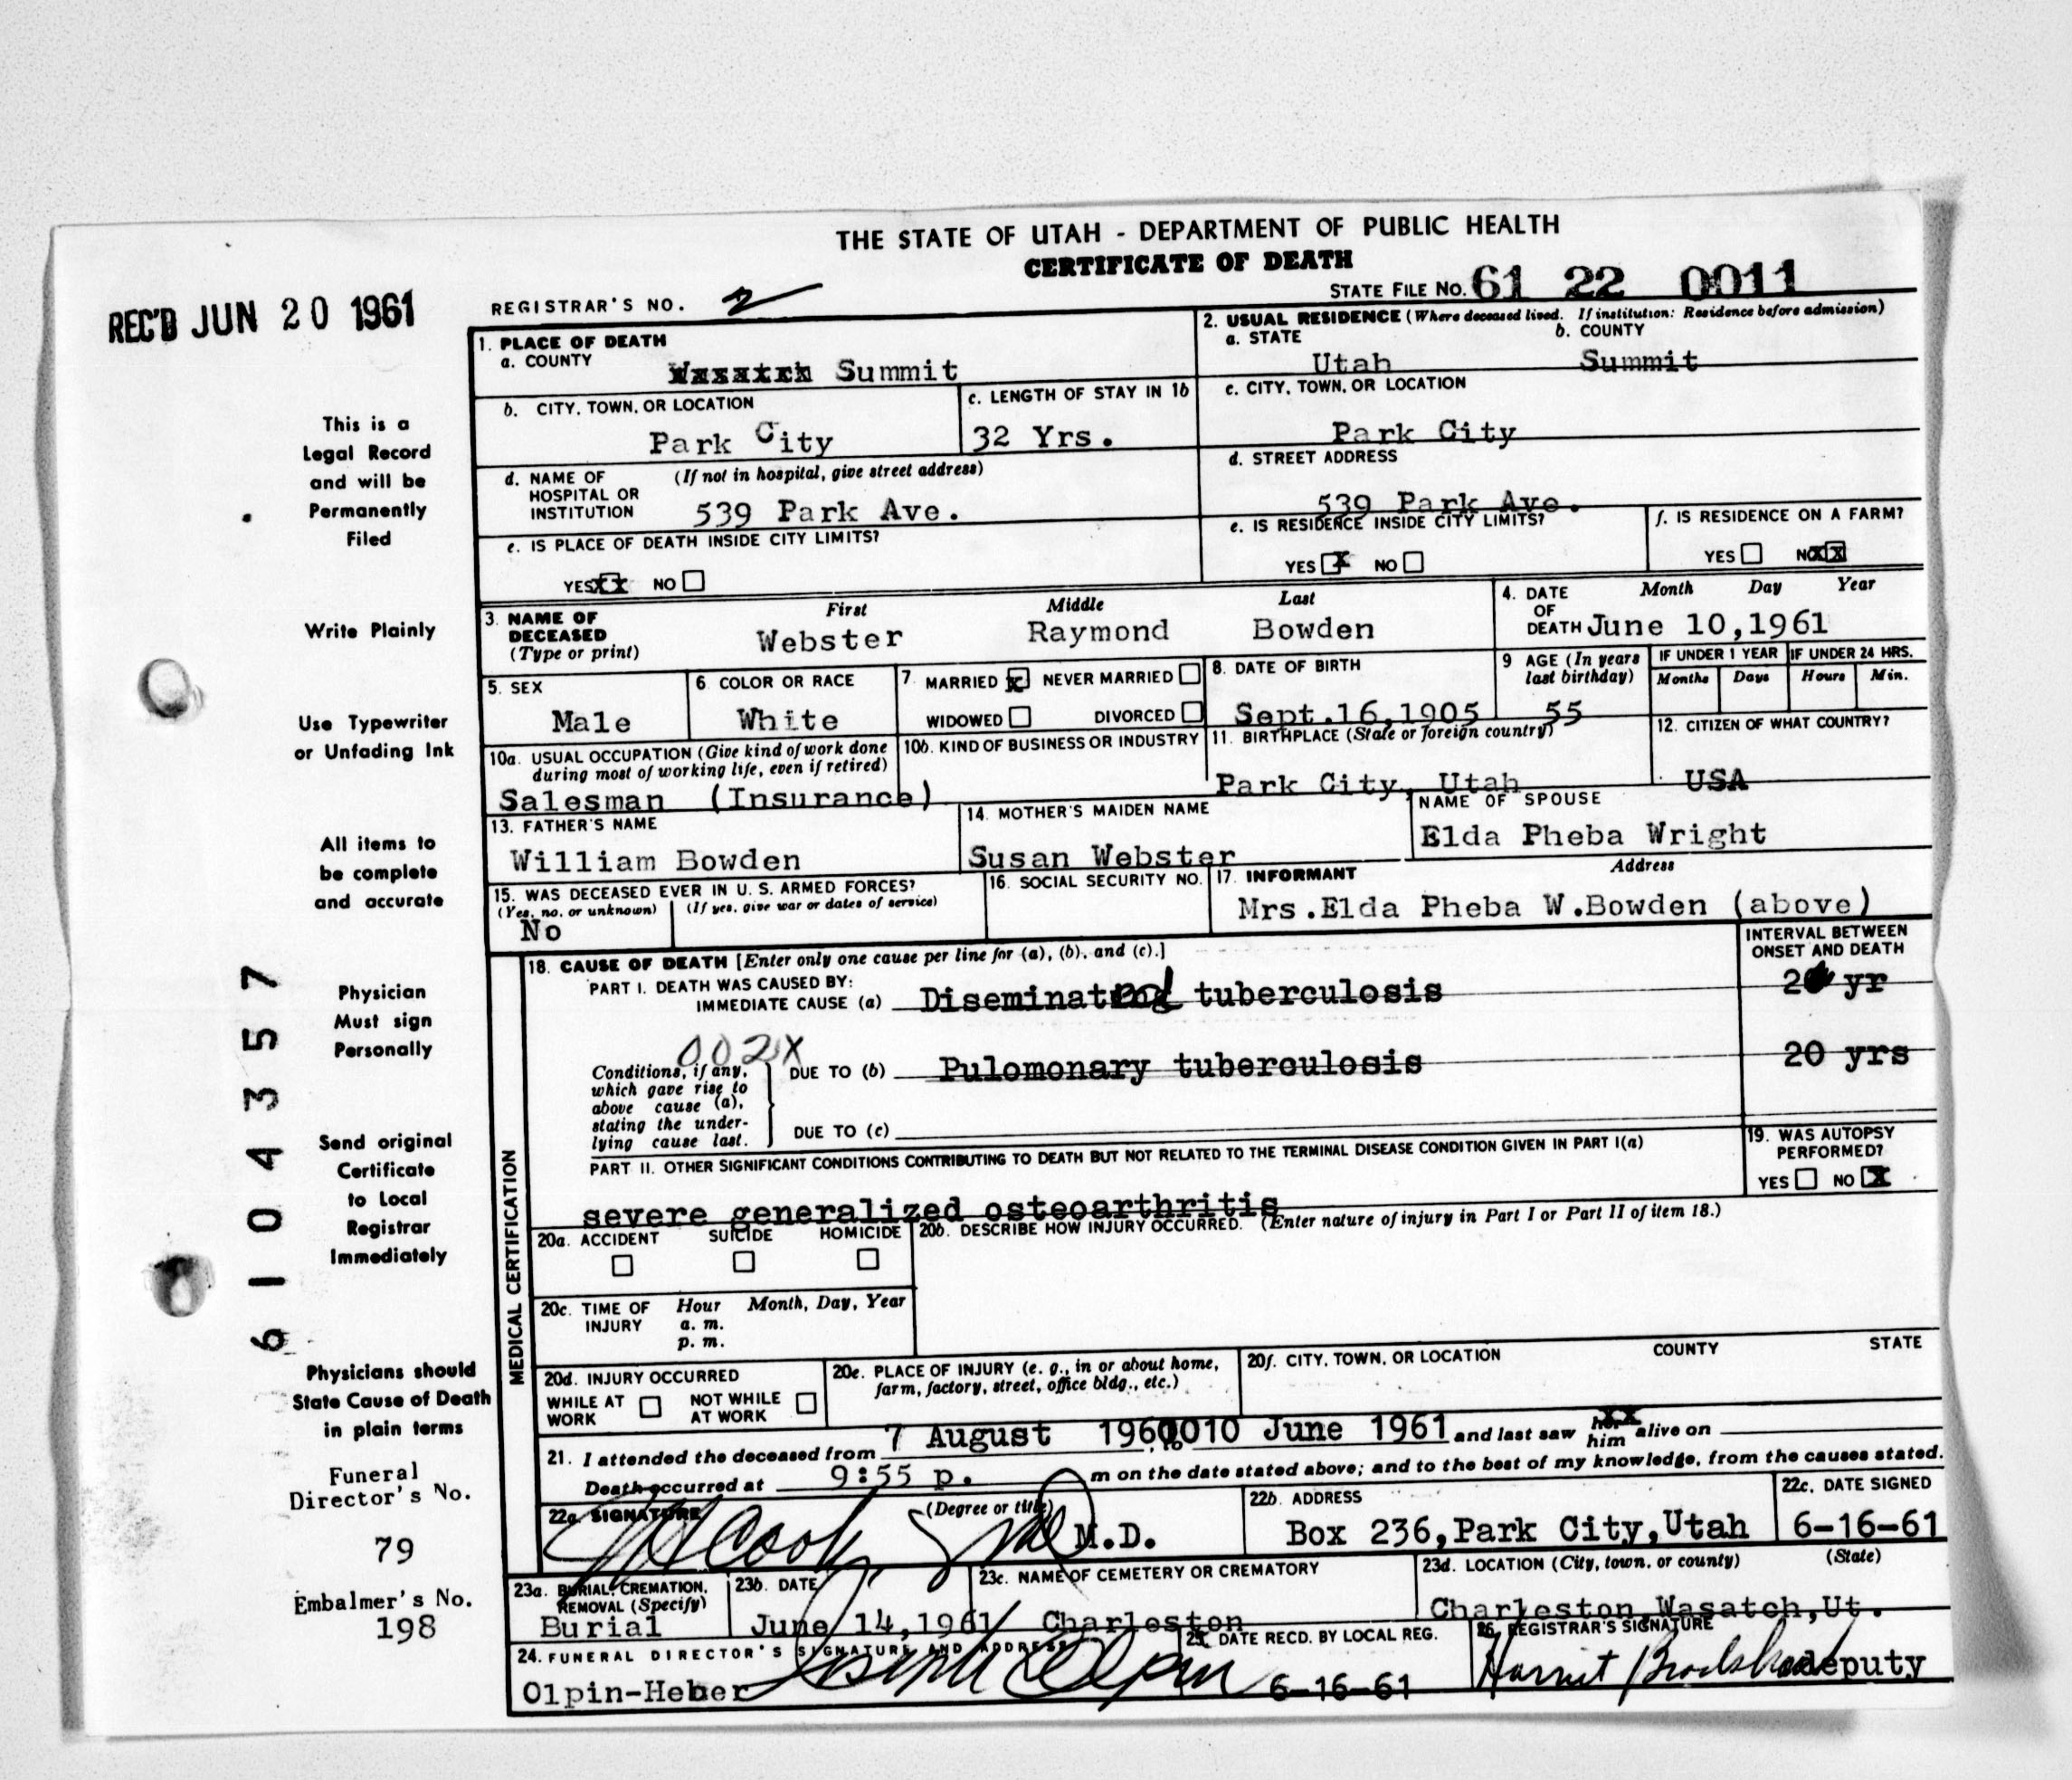 THE STATE OF UTAH - DEPARTMENT OF PUBLIC HEALTH
CERTIFICATE OF DEATH
REC'D JUN 20 1961
REGISTRAR'S NO. 2
STATE FILE NO. 61 22 0011
1. PLACE OF DEATH
a. COUNTY
Summit
2. USUAL RESIDENCE (Where deceased lived. If institution: Residence before admission)
a. STATE
b. COUNTY
Utah Summit
b. CITY, TOWN, OR LOCATION
Park City
c. LENGTH OF STAY IN 1b
32 Yrs.
c. CITY, TOWN, OR LOCATION
Park City
d. NAME OF HOSPITAL OR INSTITUTION
(If not in hospital, give street address)
539 Park Ave.
d. STREET ADDRESS
539 Park Ave.
e. IS PLACE OF DEATH INSIDE CITY LIMITS?
YES xx NO
e. IS RESIDENCE INSIDE CITY LIMITS?
YES x NO
f. IS RESIDENCE ON A FARM?
YES NO xx
3. NAME OF DECEASED (Type or print)
First Middle Last
Webster Raymond Bowden
4. DATE OF DEATH
Month Day Year
June 10,1961
5. SEX
Male
6. COLOR OR RACE
White
7. MARRIED x NEVER MARRIED
WIDOWED DIVORCED
8. DATE OF BIRTH
Sept.16,1905
9 AGE (In years last birthday)
55
IF UNDER 1 YEAR
Months Days
IF UNDER 24 HRS.
Hours Min.
10a. USUAL OCCUPATION (Give kind of work done during most of working life, even if retired)
Salesman (Insurance)
10b. KIND OF BUSINESS OR INDUSTRY
11. BIRTHPLACE (State or foreign country)
Park City, Utah
12. CITIZEN OF WHAT COUNTRY?
USA
13. FATHER'S NAME
William Bowden
14. MOTHER'S MAIDEN NAME
Susan Webster
NAME OF SPOUSE
Elda Pheba Wright
15. WAS DECEASED EVER IN U. S. ARMED FORCES?
(Yes, no, or unknown) (If yes, give war or dates of service)
No
16. SOCIAL SECURITY NO.
17. INFORMANT Address
Mrs.Elda Pheba W.Bowden (above)
MEDICAL CERTIFICATION
18. CAUSE OF DEATH [Enter only one cause per line for (a), (b), and (c).]
INTERVAL BETWEEN ONSET AND DEATH
PART I. DEATH WAS CAUSED BY:
IMMEDIATE CAUSE (a) Diseminated tuberculosis
yr
002X
Conditions, if any, which gave rise to above cause (a), stating the underlying cause last.
DUE TO (b) Pulomonary tuberculosis
20 yrs
DUE TO (c)
PART II. OTHER SIGNIFICANT CONDITIONS CONTRIBUTING TO DEATH BUT NOT RELATED TO THE TERMINAL DISEASE CONDITION GIVEN IN PART I(a)
severe generalized osteoarthritis
19. WAS AUTOPSY PERFORMED?
YES NO X
20a. ACCIDENT SUICIDE HOMICIDE
20b. DESCRIBE HOW INJURY OCCURRED. (Enter nature of injury in Part I or Part II of item 18.)
20c. TIME OF INJURY
Hour Month, Day, Year
a. m.
p. m.
20d. INJURY OCCURRED
WHILE AT WORK NOT WHILE AT WORK
20e. PLACE OF INJURY (e. g., in or about home, farm, factory, street, office bldg., etc.)
20f. CITY, TOWN, OR LOCATION COUNTY STATE
21. I attended the deceased from 7 August 1960 to 10 June 1961 and last saw her him alive on
Death occurred at 9:55 p. m on the date stated above; and to the best of my knowledge, from the causes stated.
22a. SIGNATURE (Degree or title)
Cook M.D.
22b. ADDRESS
Box 236,Park City,Utah
22c. DATE SIGNED
6-16-61
23a. BURIAL, CREMATION, REMOVAL (Specify)
Burial
23b. DATE
June 14,1961
23c. NAME OF CEMETERY OR CREMATORY
Charleston
23d. LOCATION (City, town, or county) (State)
Charleston,Wasatch,Ut.
24. FUNERAL DIRECTOR'S SIGNATURE AND ADDRESS
Olpin-Heber Olpin
25. DATE RECD. BY LOCAL REG.
6-16-61
26. REGISTRAR'S SIGNATURE
Harriet deputy
This is a
Legal Record
and will be
Permanently
Filed
Write Plainly
Use Typewriter
or Unfading Ink
All items to
be complete
and accurate
Physician
Must sign
Personally
Send original
Certificate
to Local
Registrar
Immediately
Physicians should
State Cause of Death
in plain terms
Funeral
Director's No.
79
Embalmer's No.
198
6104357